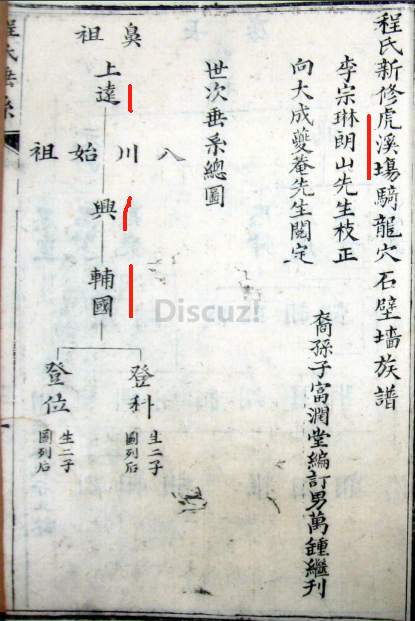 程氏新修虎溪塲騎龍穴石壁墻族譜
李宗琳朗山先生枝正
向大成夔菴先生閱定
裔孫子富潤堂編訂男萬鍾繼刊
世次垂系總圖
鼻祖
上達
入川始祖
興
輔國
登科
生二子
圖列后
登位
生二子
圖列后
程氏垂系
Discuz!